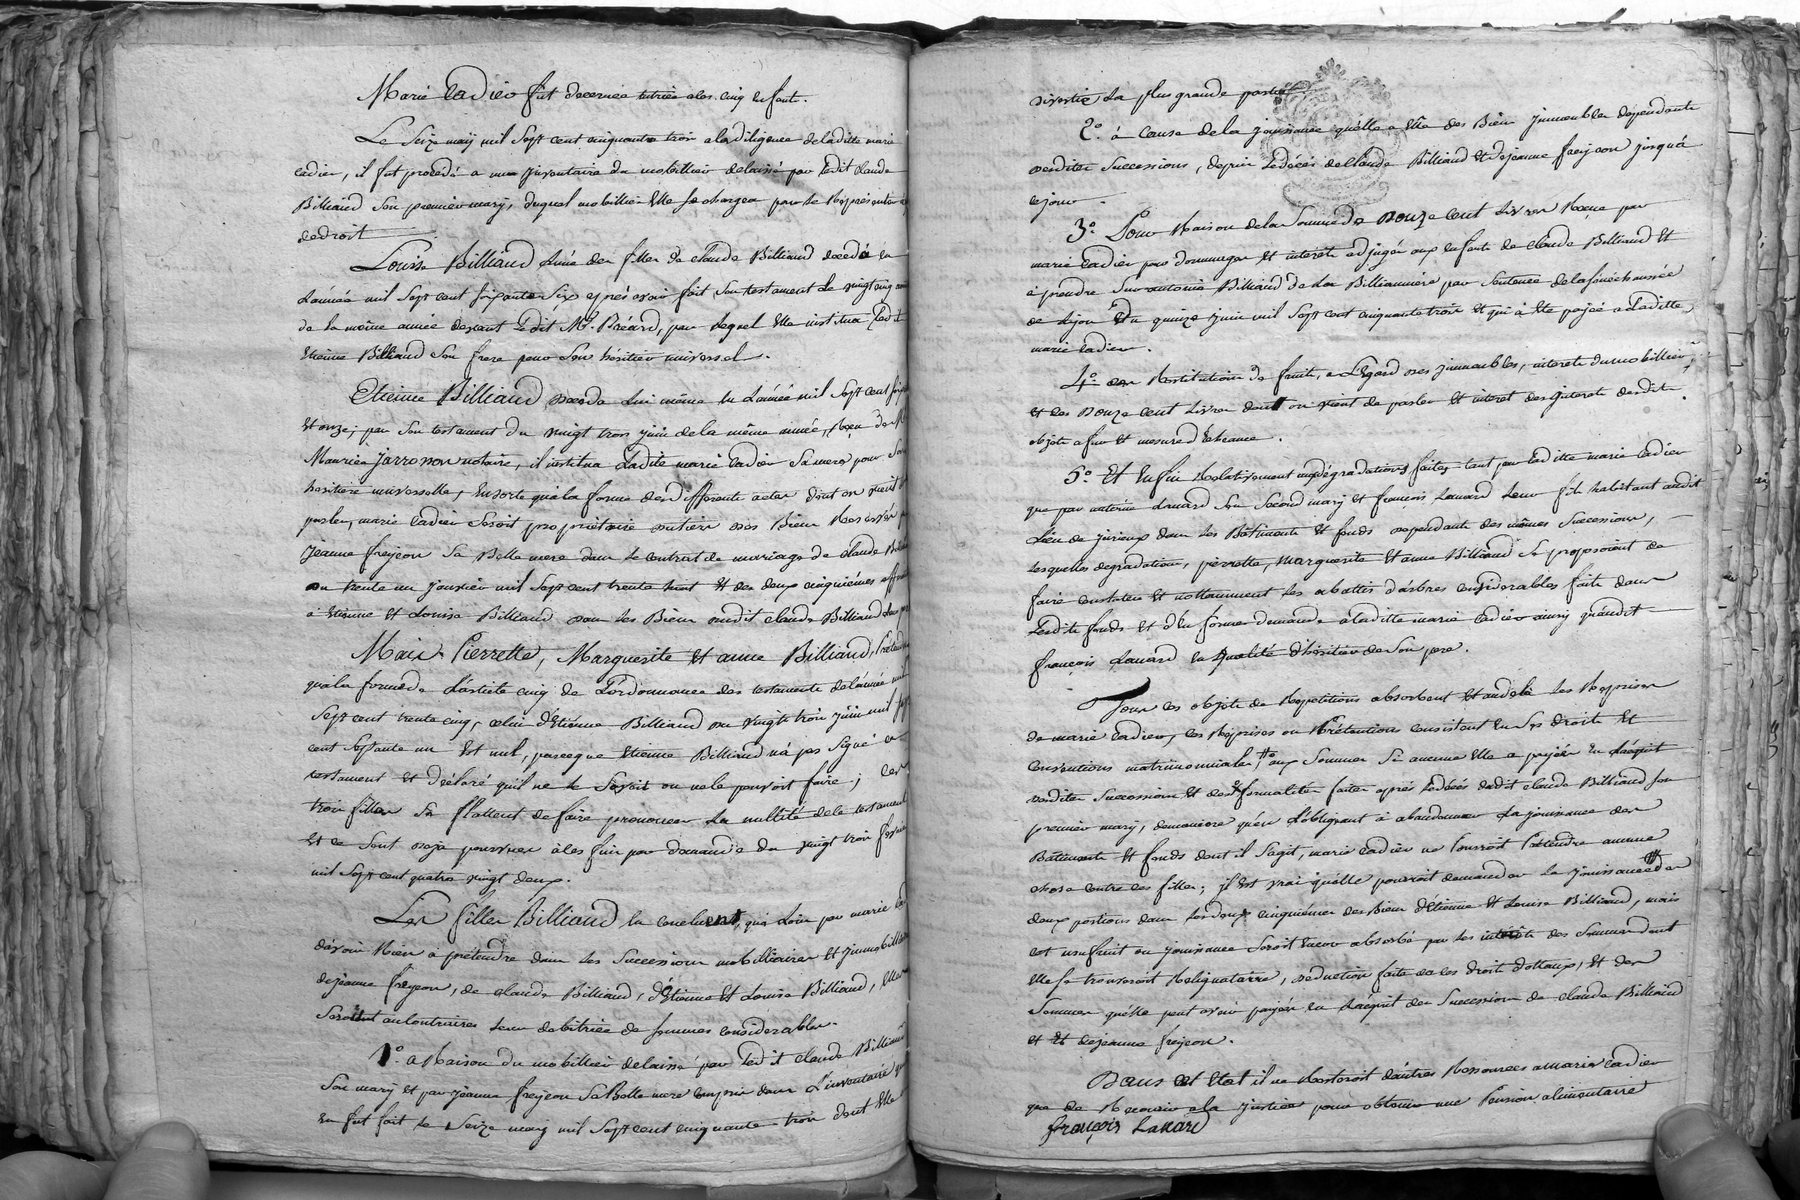 Marie Cadier fut decernee tutrice a les cinq enfant.
Le Seize may mil Sept cent cinquante trois a la diligence de ladite marie
Cadier, il fut procedé a un jnventaire du mobillier delaissé par Ledit Claude
Billiaud Son premier mary, duquel mobillier Elle Se chargea pour le Représenter
de droit
Louise Billiaud L'une des filles de Claude Billiaud decéda en
L'année mil Sept cent Soixante Six après avoir fait Son testament le vingt cinq
de la même année devant Ledit Mr. Bréard, par Lequel Elle institua Ledit
Etienne Billiaud Son frere pour Son héritier universel.
Etienne Billiaud deceda Lui même En L'année mil Sept cent Soixante
Et onze; par Son testament du vingt trois juin de la même année, Reçu de
Maurice Jarrosson notaire, il institua Ladite marie Cadier Sa mere pour Son
heritiere universelle, Ensorte qu'a la forme des differents actes dont on vient de
parler, marie Cadier Seroit propriétaire entiere des Bien Reservés par
Jeanne freyjeon Sa Belle mere dans le contrat de mariage de Claude Billiaud
du trente un janvier mil Sept cent trente huit Et des deux cinquiémes
a Etienne Et Louise Billiaud dans les Bien dudit Claude Billiaud Leur pere
Mais Pierrette, Marguerite Et anne Billiaud,
qu'a la forme de L'article cinq de L'ordonnance des testaments de L'année mil
Sept cent trente cinq, celui d'Etienne Billiaud du vingt trois juin mil Sept
cent Septante un Est nul, parceque Etienne Billiaud n'a pas Signé ce
testament Et déclaré qu'il ne le Savoit ou ne le pouvoit faire; ces
trois filles Se flattent de faire prononcer La nullité de ce testament
Et se Sont deja pourvues à ces fins par demande du vingt trois février
mil Sept cent quatre vingt deux.
Les filles Billiaud En concluent, que Loin par marie Cadier
d'avoir Rien a prétendre dans les Successions mobilliaires Et jmmobilliaires
de jeanne freyjeon, de Claude Billiaud, d'Etienne Et Louise Billiaud, Elle
Seroit au Contraires Leur debitrice de Sommes considerables.
1.° a Raison du mobillier delaissé par Ledit Claude Billiaud
Son mary Et par jeanne freyjeon Sa Belle mere compris dans L'inventaire qui
En fut fait le Seize may mil Sept cent cinquante trois dont Elle
divertie La plus grande partie
2.° à Cause de la jouissance qu'elle a Eüe des Bien jmmeubles dépendants
desdites Successions, depuis Ledécés de Claude Billiaud Et de jeanne freyjeon jusqu'à
ce jour.
3.° Pour Raison de la Somme de Douze cent Livres Reçue par
marie Cadier pour dommages Et interêts adjugés aux enfants de Claude Billiaud Et
a prendre Sur antoine Billiaud de La Billianniere par Sentence de la Sénéchaussée
de Lyon Du quinze juin mil Sept cent cinquante trois Et qui à Eté payée a Ladite
marie Cadier.
4.° des Restitutions de fruits, a L'Egard des jmmeubles, interets du mobillier
Et des Douze cent Livres dont on vient de parler Et interet des jnterets desdits
objets a fur Et mesure d'Echeance.
5.° Et Enfin Relativement aux dégradations faites tant par Ladite marie Cadier
que par antoine Lavard Son Second mary Et françois Lavard Leur fils habitant audit
Lieu de jurieux dans les Bâtiments Et fonds dependants des mêmes Successions,
lesquelles degradations, perrette, Marguerite Et anne Billiaud Se proposoient de
faire constater Et nottamment les abattis d'arbres considerables faits dans
Lesdits fonds Et d'En former demande a ladite marie Cadier ainsy qu'audit
françois Lavard En Qualité d'héritier de Son pere.
Tous ces objets de Répetitions absorbent Et audela les Reprises
de marie Cadier, ces Reprises ou Prétentions consistent En Ses droits Et
conventions matrimoniales, aux Sommes Si aucune Elle a payées En L'acquit
desdites Successions Et des formalités faites après Ledécés dudit Claude Billiaud Son
premier mary, demaniere qu'en L'obligeant à abandonner La jouissance des
Bâtiments Et fonds dont il S'agit, marie Cadier ne Pourroit Prétendre aucune
chose contre ces filles; il Est vrai qu'elle pourroit demander la jouissance de
deux portions dans Les deux cinquiémes des Bien d'Etienne Et Louise Billiaud, mais
cet usufruit ou jouissance Seroit Encor absorbé par les interêts des Sommes dont
Elle Se trouveroit Reliquatairre, deduction faite de ces droits dottaux, Et des
Sommes qu'elle peut avoir payées En L'acquit des Successions de Claude Billiaud
et Et de jeanne freyjeon.
Dans cet Etat il ne Resteroit d'autres Ressources a marie Cadier
que de Recourir a la justice pour obtenir une Pension alimentaire
françois Lavard